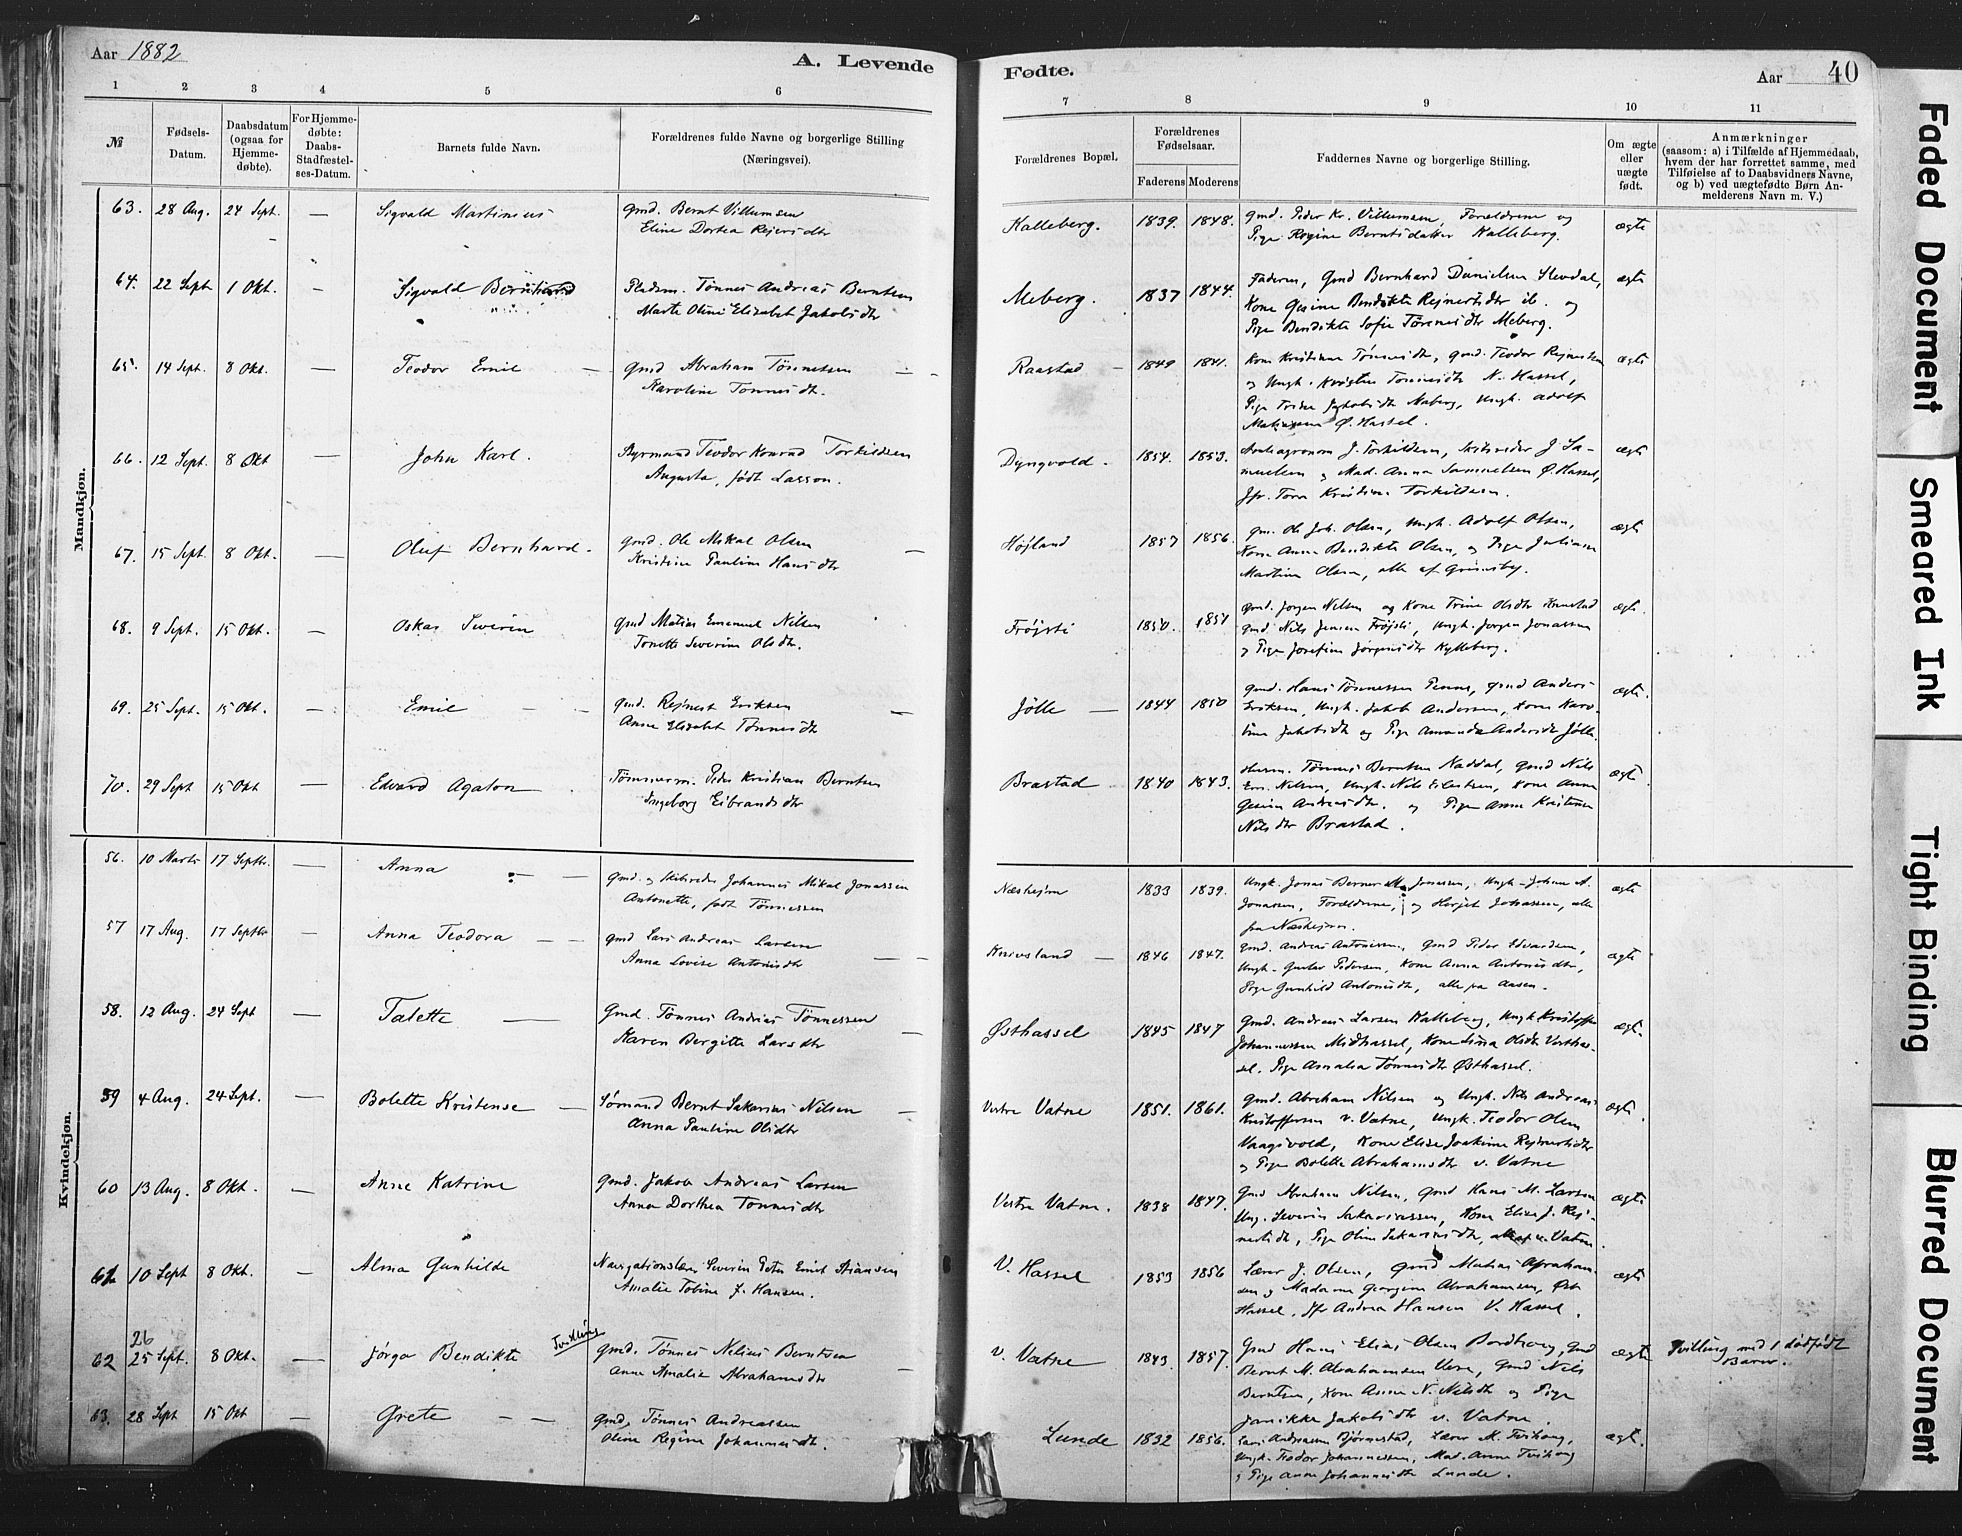 Aar 1882
A. Levende
Fødte.
Aar 40
1 2 3 4 5 6 7 8 9 10 11
№
Fødsels-
Datum.
Daabsdatum
(ogsaa for
Hjemme-
døbte).
For Hjemme-
døbte:
Daabs-
Stadfæstel-
ses-Datum.
Barnets fulde Navn.
Forældrenes fulde Navne og borgerlige Stilling
(Næringsvei).
Forældrenes Bopæl.
Forældrenes
Fødselsaar.
Faderens Moderens
Faddernes Navne og borgerlige Stilling.
Om ægte
eller
uægte
født.
Anmærkninger
(saasom: a) i Tilfælde af Hjemmedaab,
hvem der har forrettet samme, med
Tilføielse af to Daabsvidners Navne,
og b) ved uægtefødte Børn An-
melderens Navn m. V.)
Mandkjøn.
63. 28 Aug. 24 Sept. — Sigvald Martinius
Gmd. Bernt Villumsen
Eline Dortea Rejersdtr
Kalleberg. 1839. 1848.
Gmd. Peder Kr. Villumsen, Forældrene og
Pige Regine Berntsdatter Kalleberg.
ægte
64. 22 Sept 1 Okt. — Sigvald Bernhard
Pladsm. Tønnes Andreas Berntsen
Marte Oline Elisabet Jakobsdtr
Meberg. 1837 1844.
Faderen, Gmd Bernhard Danielsen
Kone Gesine Bendikte Rejnertsdtr ib. og
Pige Bendikte Sofie Tønnesdtr Meberg.
ægte
65. 14 Sept. 8 Okt. — Teodor Emil —
Gmd Abraham Tønnessen
Karoline Tønnesdtr.
Raastad — 1849 1841.
Kone Kristiane Tønnesdtr, Gmd. Teodor Rejnertsen
og Ungk. Tønnesdtr N. Hassel,
Pige Trine Jakobsdtr Ungk. Adolf
Ø. Hassel.
ægte
66. 12 Sept. 8 Okt — John Karl.
Styrmand Teodor Konrad Torkildsen
Augusta, født Lasson.
Dyngvold. 1854. 1853.
J. Torkildsen, J. Sa-
muelsen og Mad. Anna Samuelsen Ø. Hassel,
Jfr. Tora Kristine Torkildsen.
ægte
67. 15 Sept. 8 Okt. — Oluf Bernhard.
Gmd. Ole Mikal Olsen
Kristine Pauline Hansdtr
Højland 1857 1856.
Gm. Ole Joh. Olsen, Ungk. Adolf Olsen,
Kone Anna Bendikte Olsen, og Pige Juliane
Martine Olsen, alle af
ægte
68. 9 Sept. 15 Okt. — Oskar Severin
Gmd Matias Emanuel Nilsen
Tonette Severine Olsdtr.
Frøjsti 1850. 1851
Gmd. Jørgen Nilsen og Kone Trine Olsdtr
Gmd. Nils Jensen Frøjsti, Ungk. Jørgen Jonassen
og Pige Josefine Jørgensdtr Kylleberg.
ægte.
69. 25 Sept. 15 Okt. — Emil — —
Gmd. Rejnert Eriksen
Anne Elisabet Tønnesdtr
Jølle — 1844 1850
Gmd. Hans Tønnessen Penne, Gmd Anders
Eriksen, Ungk. Jakob Andersen, Kone Karo-
line Jakobsdtr og Pige Amanda Andersdtr Jølle.
ægte
70. 29 Sept 15 Okt — Edvard Agaton
Tømmerm. Peder Kristian Berntsen
Ingeborg Eibrandsdtr
Brastad 1840 1843.
Husm. Tønnes Berntsen Naddal, Gmd Nils
Nilsen, Ungk. Nils Eilertsen, Kone Anne
Gesine Andreasdtr. og Pige Anne Kristense
Nilsdtr Brastad.
ægte
Kvindekjøn.
56. 10 Marts 17 Septbr. — Anna —
Gmd. og Skibsreder Johannes Mikal Jonassen
Antonette, født Tønnessen
Næshejm 1833 1839.
Ungk. Jonas Berner M. Jonassen, Ungk. Johan A.
Jonassen, Forældrene, og Johassen, alle
fra Næshejm.
ægte
57 17 Aug. 17 Septbr — Anna Teodora —
Gmd Lars Andreas Larsen
Anna Lovise Antonisdtr
Knivsland — 1846 1847.
Gmd. Andreas Antonisen, Gmd Peder Edvardsen,
Ungk. Gustav Pedersen, Kone Anna Antonisdtr,
Pige Gunhild Antonisdtr, alle fra Aasen.
ægte
58. 12 Aug. 24 Sept — Talette —
Gmd. Tønnes Andreas Tønnessen
Karen Bergitte Larsdtr
Østhassel 1845 1847
Gmd. Andreas Larsen Kalleberg, Ungk Kristoffer
Johannessen Midthassel, Kone Lina Olsdtr Vesthas-
sel. Pige Amalia Tønnesdtr Østhassel.
ægte.
59 4 Aug. 24 Sept. — Bolette Kristense —
Sømand Bernt Sakarias Nilsen
Anna Pauline Olsdtr
Vestre Vatne 1851. 1861.
Gmd. Abraham Nilsen og Ungk. Nils Andreas
Kristoffersen v. Vatne, Ungk. Teodor Olsen
Vaagsvold, Kone Elise Joakime Rejnertsdtr
og Pige Bolette Abrahamsdtr v. Vatne
ægte.
60 13 Aug. 8 Okt. — Anne Katrine
Gmd. Jakob Andreas Larsen
Anna Dorthea Tønnesdtr
Vestre Vatne. 1838 1847.
Gmd Abraham Nilsen, Gmd Hans M. Larsen
Ung. Severin Sakariassen, Kone Elise J. Rej-
nertsdtr, Pige Oline Sakariasdtr, alle af v. Vatne.
ægte
61 10 Sept 8 Okt. — Alma Gunhilde
Navigationslær. Severin Peter Emil
Amalie Tobine f. Hansen.
V. Hassel 1853 1856
Lærer J. Olsen, Gmd Matias Abraham-
sen og Madame Georgine Abrahamsen, Øst
Hassel, Jfr Andrea Hansen V. Hassel.
ægte
62 26
25 Sept. 8 Okt. — Jørga Bendikte Tvilling
Gmd. Tønnes Nelius Berntsen
Anne Amalie Abrahamsdtr
v. Vatne 1843. 1857.
Gmd Hans Elias Olsen Gmd
Bernt M. Abrahamsen Gmd Nils
Berntsen, Kone Anne N. Nilsdtr og Pige
Janikke Jakobsdtr v. Vatne.
ægte Tvilling med 1 dødfødt
Barn.
63. 28 Sept 15 Okt — Grete — —
Gmd. Tønnes Andreassen
Oline Regine Johannesdtr.
Lunde 1832 1856.
Lars Andreassen Bjørnestad, Lærer M.
Ungk. Teodor Johannessen, Mad. Anne
og Pige Anne Johannesdtr Lunde.
ægt.
Faded Document
Smeared Ink
Tight Binding
Blurred Document